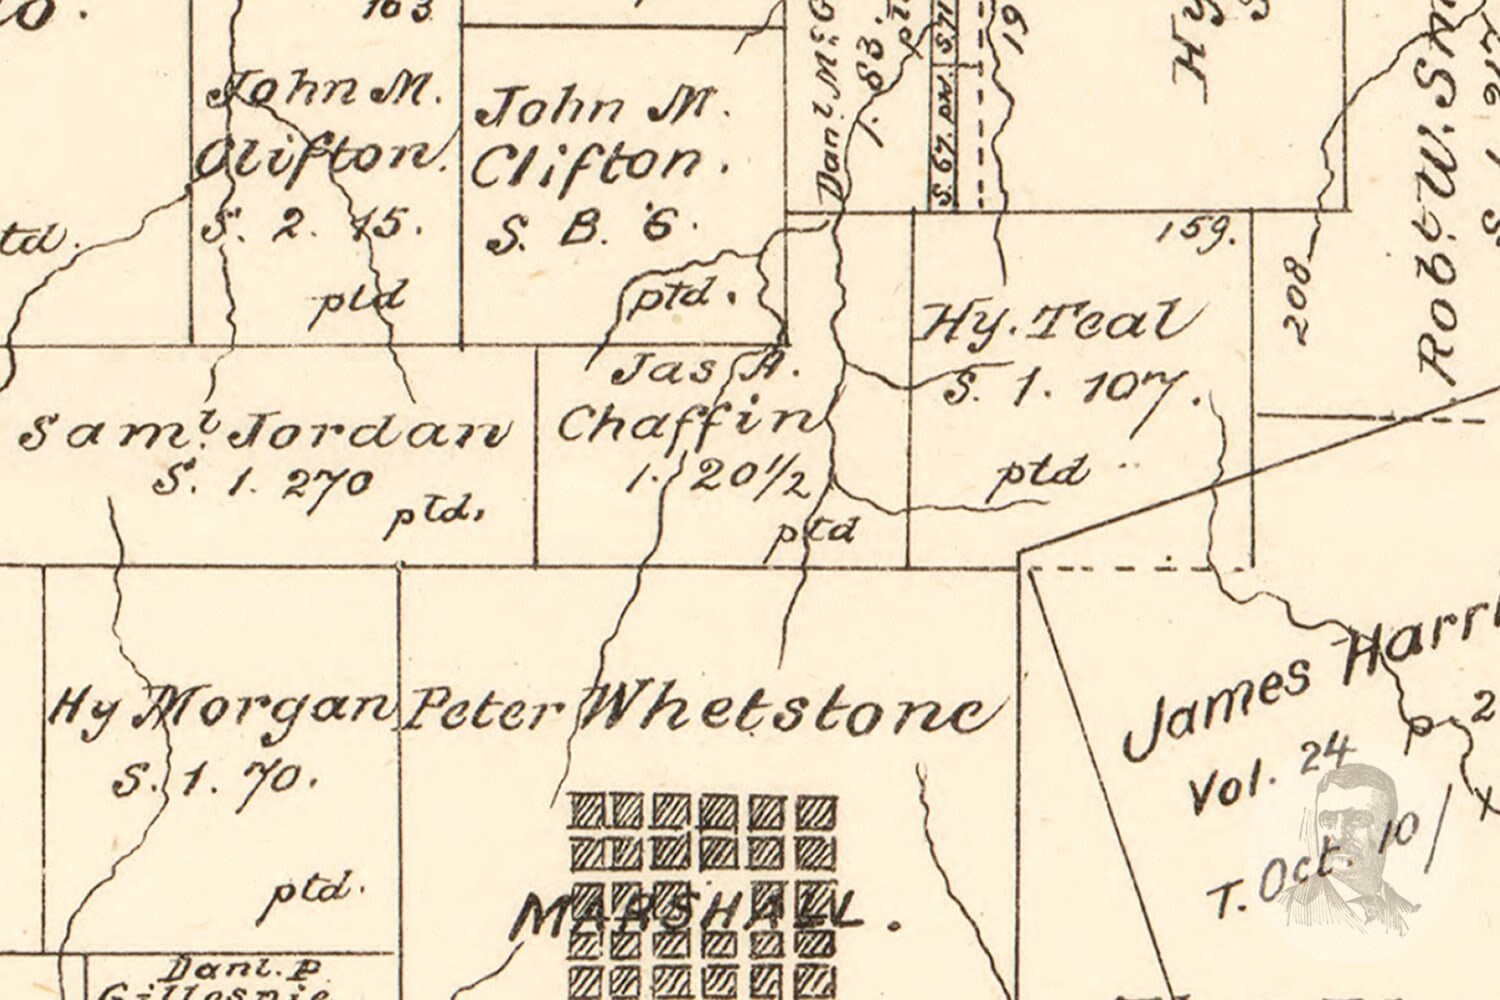 163
John M.
Clifton.
S. 2. 15.
ptd
John M.
Clifton.
S. B. 6.
ptd.
1. 83.
S. 67. pw. S. 71
19
Hy
159.
208
Robt. W. Sm
td.
Hy. Teal
S. 1. 107.
ptd
Jas. A.
Chaffin
1. 20½
ptd
Saml. Jordan
S. 1. 270
ptd.
Hy Morgan
S. 1. 70.
ptd.
Peter Whetstone
MARSHALL.
James Harri
Vol. 24
T. Oct. 10
2
Danl. P.
Gillespie